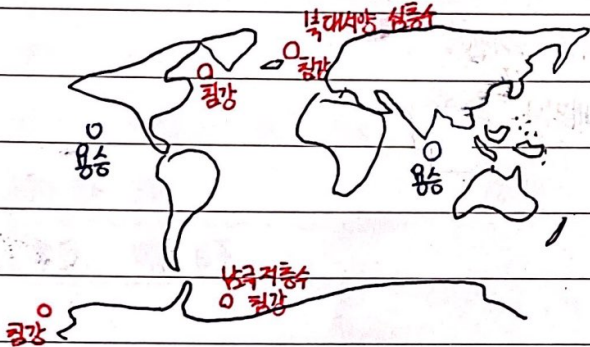 북대서양 심층수
침강
침강
용승
용승
남극 저층수
침강
침강